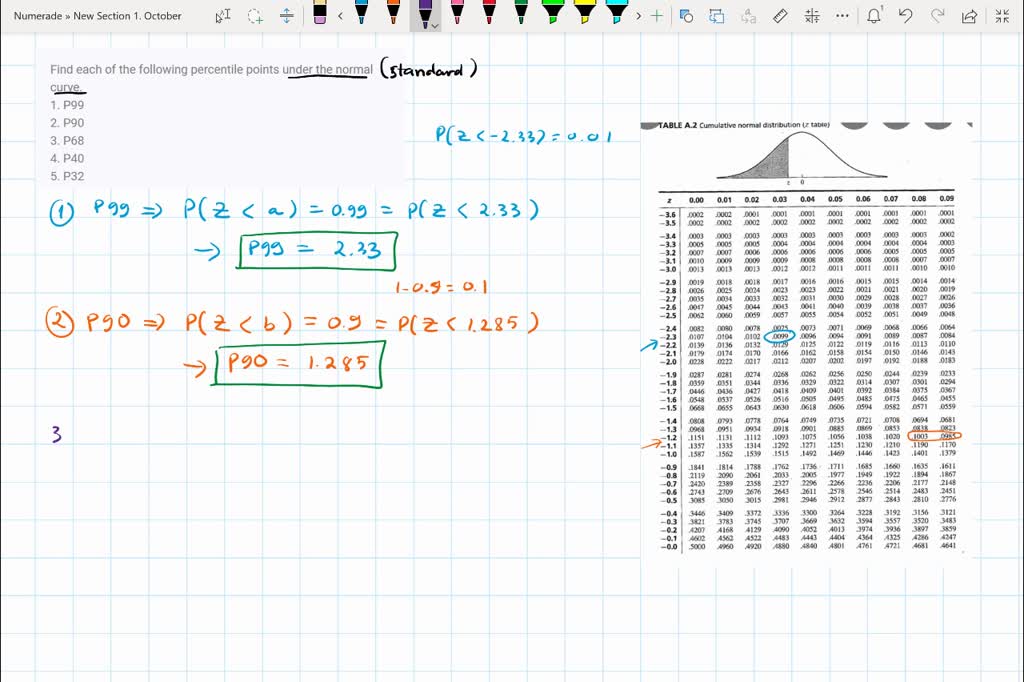 Numerade » New Section 1. October
Find each of the following percentile points under the normal (standard)
curve.
1. P99
2. P90
3. P68
4. P40
5. P32
P(Z<-2.33) = 0.01
① P99 ⇒ P(Z < a) = 0.99 = P(Z < 2.33)
→ P99 = 2.33
1-0.9 = 0.1
② P90 ⇒ P(Z < b) = 0.9 = P(Z < 1.285)
→ P90 = 1.285
3
TABLE A.2 Cumulative normal distribution (z table)
z 0
z 0.00 0.01 0.02 0.03 0.04 0.05 0.06 0.07 0.08 0.09
-3.6 .0002 .0002 .0001 .0001 .0001 .0001 .0001 .0001 .0001 .0001
-3.5 .0002 .0002 .0002 .0002 .0002 .0002 .0002 .0002 .0002 .0002
-3.4 .0003 .0003 .0003 .0003 .0003 .0003 .0003 .0003 .0003 .0002
-3.3 .0005 .0005 .0005 .0004 .0004 .0004 .0004 .0004 .0004 .0003
-3.2 .0007 .0007 .0006 .0006 .0006 .0006 .0006 .0005 .0005 .0005
-3.1 .0010 .0009 .0009 .0009 .0008 .0008 .0008 .0008 .0007 .0007
-3.0 .0013 .0013 .0013 .0012 .0012 .0011 .0011 .0011 .0010 .0010
-2.9 .0019 .0018 .0018 .0017 .0016 .0016 .0015 .0015 .0014 .0014
-2.8 .0026 .0025 .0024 .0023 .0023 .0022 .0021 .0021 .0020 .0019
-2.7 .0035 .0034 .0033 .0032 .0031 .0030 .0029 .0028 .0027 .0026
-2.6 .0047 .0045 .0044 .0043 .0041 .0040 .0039 .0038 .0037 .0036
-2.5 .0062 .0060 .0059 .0057 .0055 .0054 .0052 .0051 .0049 .0048
-2.4 .0082 .0080 .0078 .0075 .0073 .0071 .0069 .0068 .0066 .0064
-2.3 .0107 .0104 .0102 .0099 .0096 .0094 .0091 .0089 .0087 .0084
-2.2 .0139 .0136 .0132 .0129 .0125 .0122 .0119 .0116 .0113 .0110
-2.1 .0179 .0174 .0170 .0166 .0162 .0158 .0154 .0150 .0146 .0143
-2.0 .0228 .0222 .0217 .0212 .0207 .0202 .0197 .0192 .0188 .0183
-1.9 .0287 .0281 .0274 .0268 .0262 .0256 .0250 .0244 .0239 .0233
-1.8 .0359 .0351 .0344 .0336 .0329 .0322 .0314 .0307 .0301 .0294
-1.7 .0446 .0436 .0427 .0418 .0409 .0401 .0392 .0384 .0375 .0367
-1.6 .0548 .0537 .0526 .0516 .0505 .0495 .0485 .0475 .0465 .0455
-1.5 .0668 .0655 .0643 .0630 .0618 .0606 .0594 .0582 .0571 .0559
-1.4 .0808 .0793 .0778 .0764 .0749 .0735 .0721 .0708 .0694 .0681
-1.3 .0968 .0951 .0934 .0918 .0901 .0885 .0869 .0853 .0838 .0823
-1.2 .1151 .1131 .1112 .1093 .1075 .1056 .1038 .1020 .1003 .0985
-1.1 .1357 .1335 .1314 .1292 .1271 .1251 .1230 .1210 .1190 .1170
-1.0 .1587 .1562 .1539 .1515 .1492 .1469 .1446 .1423 .1401 .1379
-0.9 .1841 .1814 .1788 .1762 .1736 .1711 .1685 .1660 .1635 .1611
-0.8 .2119 .2090 .2061 .2033 .2005 .1977 .1949 .1922 .1894 .1867
-0.7 .2420 .2389 .2358 .2327 .2296 .2266 .2236 .2206 .2177 .2148
-0.6 .2743 .2709 .2676 .2643 .2611 .2578 .2546 .2514 .2483 .2451
-0.5 .3085 .3050 .3015 .2981 .2946 .2912 .2877 .2843 .2810 .2776
-0.4 .3446 .3409 .3372 .3336 .3300 .3264 .3228 .3192 .3156 .3121
-0.3 .3821 .3783 .3745 .3707 .3669 .3632 .3594 .3557 .3520 .3483
-0.2 .4207 .4168 .4129 .4090 .4052 .4013 .3974 .3936 .3897 .3859
-0.1 .4602 .4562 .4522 .4483 .4443 .4404 .4364 .4325 .4286 .4247
-0.0 .5000 .4960 .4920 .4880 .4840 .4801 .4761 .4721 .4681 .4641